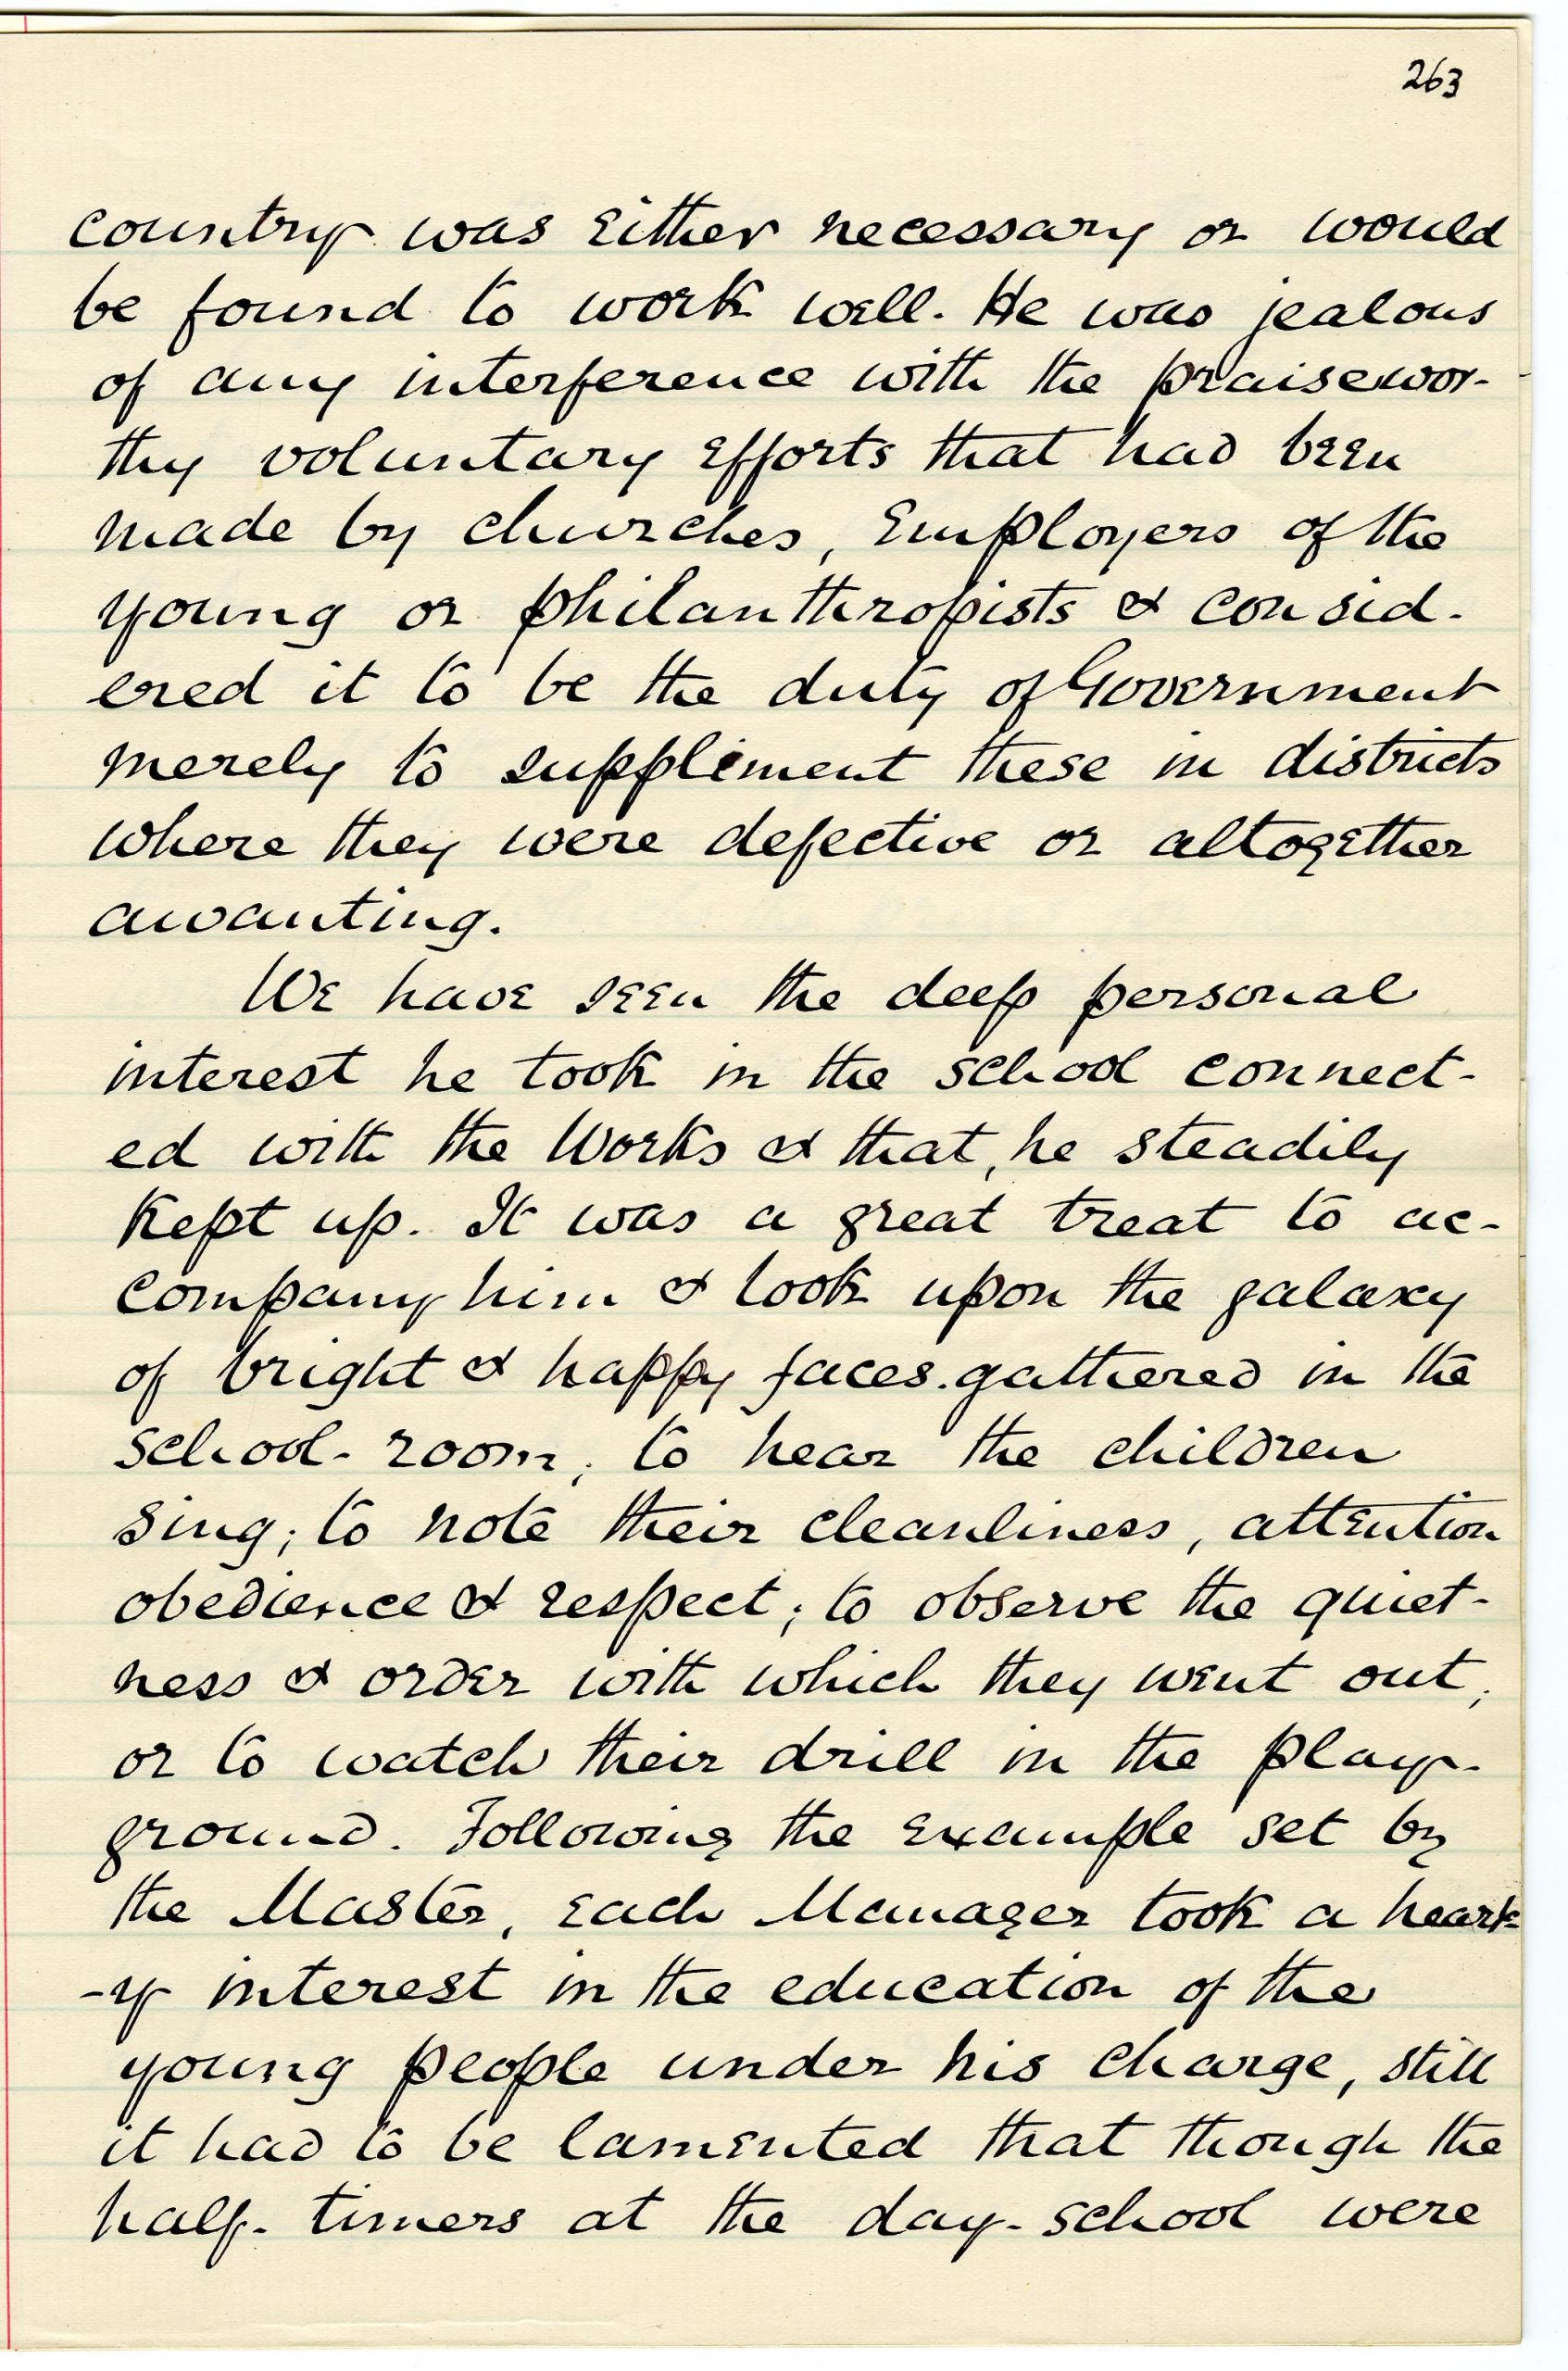 263
country was either necessary or would
be found to work well. He was jealous
of any interference with the praisewor-
thy voluntary efforts that had been
made by churches, employers of the
young or philanthropists & consid-
ered it to be the duty of Government
merely to supplement these in districts
where they were defective or altogether
awanting.
We have seen the deep personal
interest he took in the school connect-
ed with the Works & that, he steadily
kept up. It was a great treat to ac-
company him & look upon the galaxy
of bright & happy faces gathered in the
school-room; to hear the children
sing; to note their cleanliness, attention
obedience & respect; to observe the quiet-
ness & order with which they went out,
or to watch their drill in the play-
ground. Following the example set by
the Master, each Manager took a heart-
-y interest in the education of the
young people under his charge, still
it had to be lamented that though the
half-timers at the day-school were